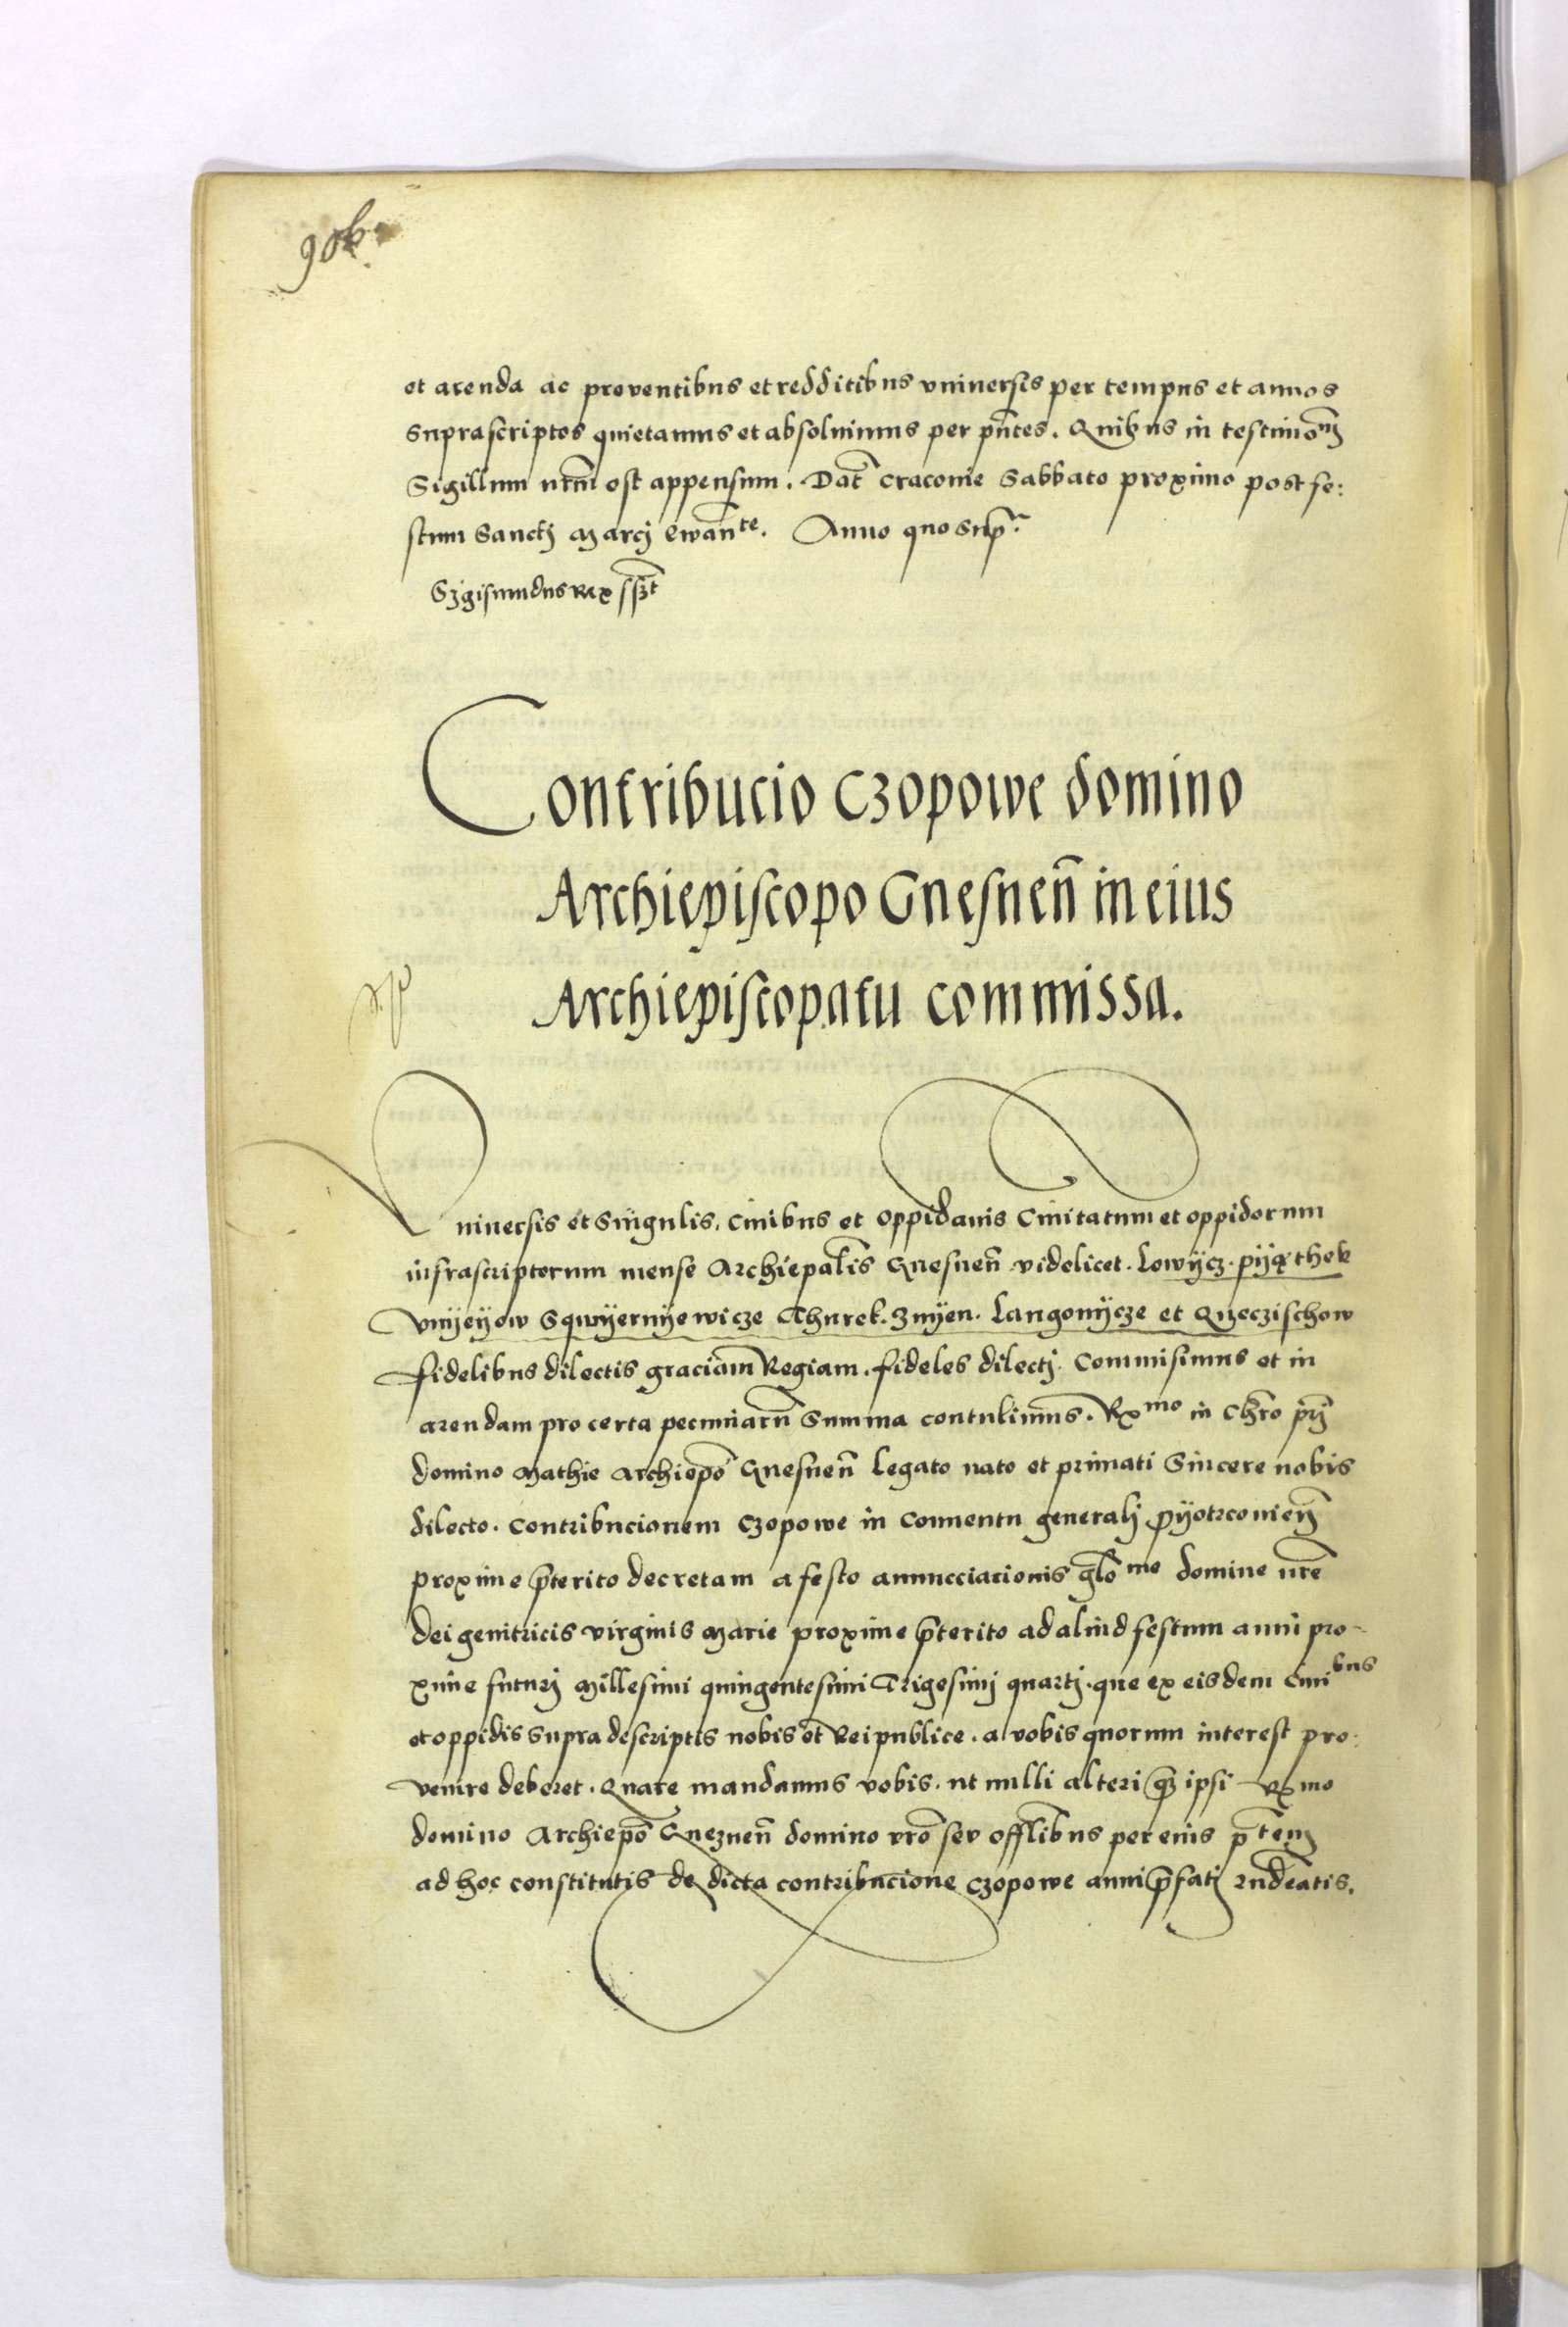 90b
et arenda ac proventibus et redditibus universis per tempus et annos
Suprascriptos quietamus et absolvimus per pn̄tes. Quibus in testimoniū
Sigillum nr̄m est appensum. Dat̄ Cracovie Sabbato proximo post fe:
stum Sancti Marcj Ewan̄te. Anno quo Supra.
Sigismundus Rex sszt
Contribucio Czopowe domino
Archiepiscopo Gnesnen̄ in eius
Archiepiscopatu commissa.
Vniversis et Singulis. Civibus et oppidanis Civitatum et oppidorum
infrascriptorum mense Archiepālis Gnesnen̄ videlicet. Lowÿcz. pÿąthek
Vnÿeÿow Sqwÿernÿewicze Thurek. Znÿen. Langonÿcze et Qÿeczischow
fidelibus dilectis graciam Regiam. fideles dilectj. Commisimus et in
arendam pro certa pecuniarū Summa contulimus. Rx mo in Chr̄o pr̄j
domino Mathie Archiepō Gnesnen̄ Legato nato et primati Sincere nobis
dilecto. Contribucionem Czopowe in Conventu generalj pÿotrcovien̄
proxime p̄terito decretam a festo annuncciacionis glō me domine nr̄e
dei genitricis virginis Marie proxime p̄terito ad aliud festum anni pro-
xime futurj Millesimi quingentesimi Trigesimj quartj. que ex eisdem Civibus
et oppidis supra descriptis nobis et Reipublice. a vobis quorum interest pro:
venire deberet. Quare mandamus vobis. ut nulli alteri qz̄ ipsi Rx mo
domino Archiepō Gneznen̄ domino vr̄o seu offl̄ibus per eius p̄tem
ad hoc constitutis de dicta contribucione Czopowe anni p̄fatj rn̄deatis.